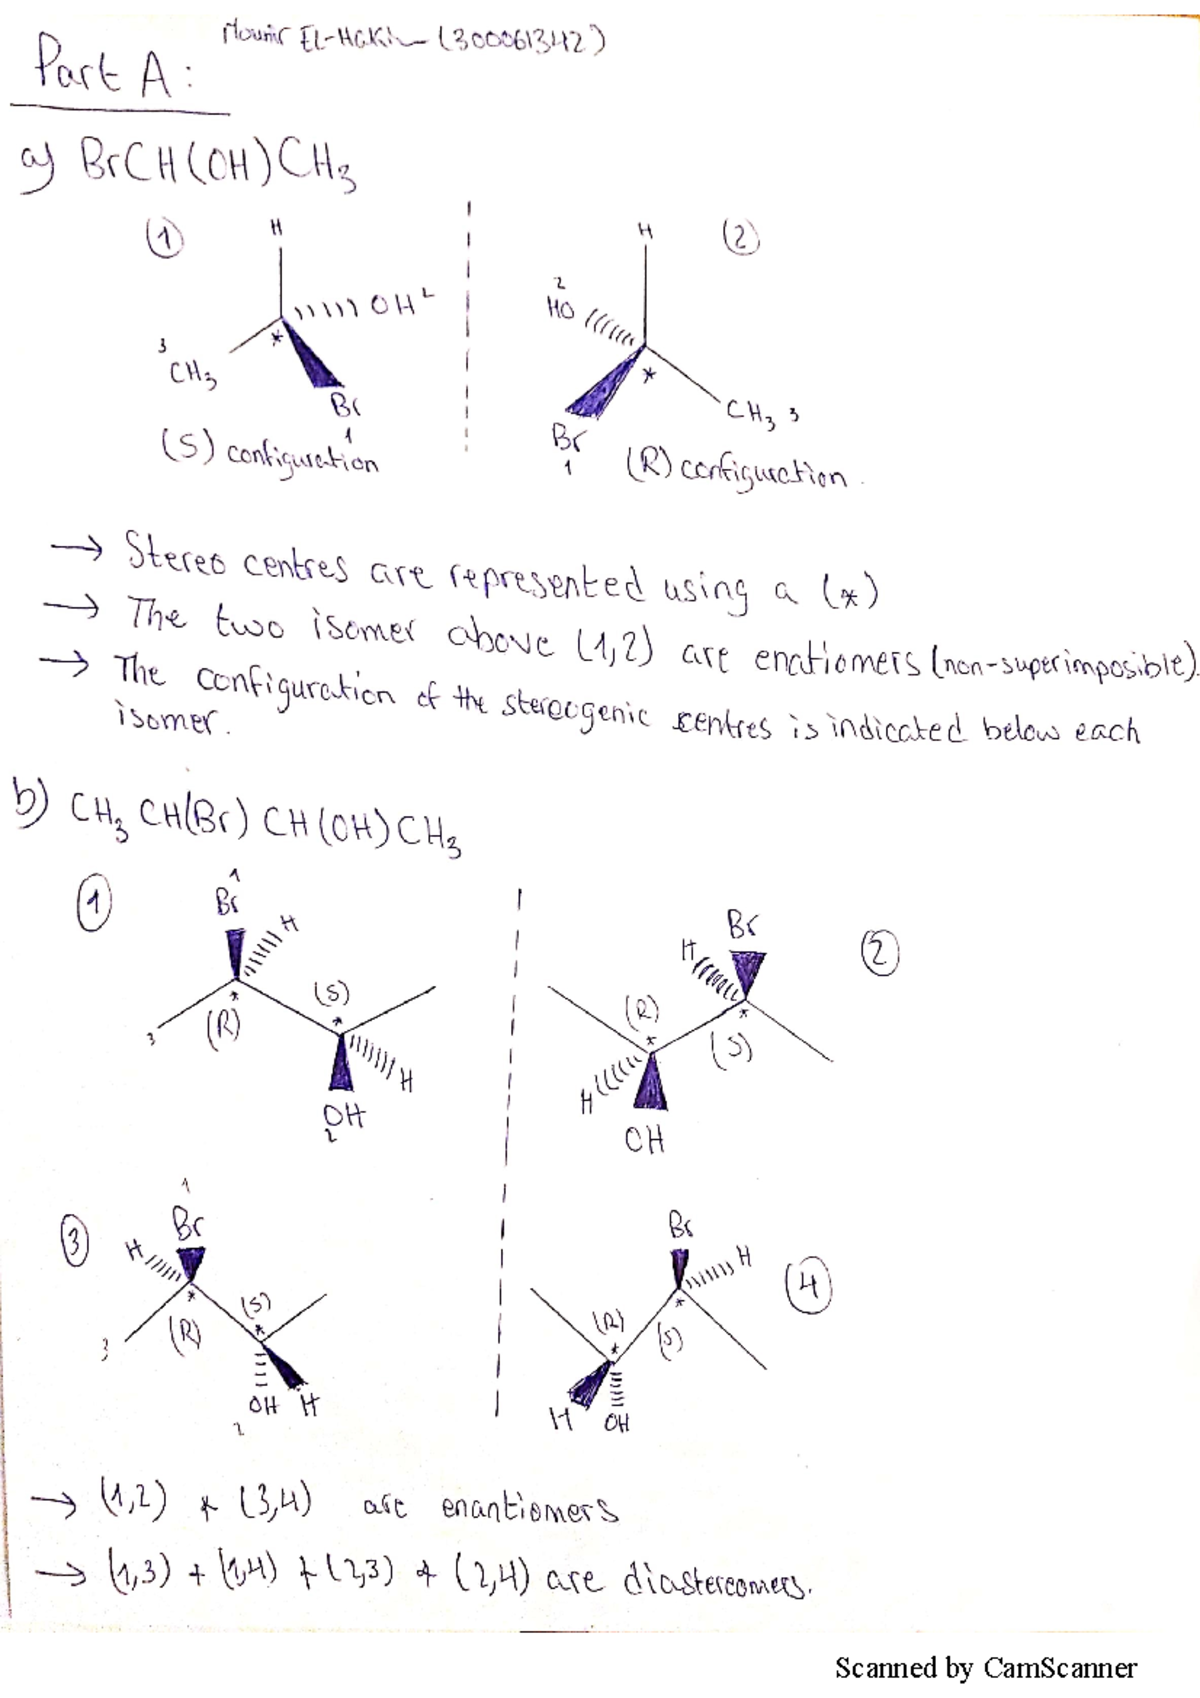 Mounir EL-HaKi (300061342)
Part A:
a) BrCH(OH)CH3
(1)
H
OH 2
*
3
CH3
Br
1
(S) configuration
(2)
H
2
HO
*
CH3 3
Br
1
(R) configuration.
→ Stereo centres are represented using a (*)
→ The two isomer above (1,2) are enatiomers (non-superimposible).
→ The configuration of the stereogenic centres is indicated below each
isomer.
b) CH3 CH(Br) CH(OH)CH3
(1)
1
Br
H
*
(R)
(S)
*
3
H
OH
2
(2)
Br
H
(R)
*
*
(S)
H
OH
(3)
1
Br
H
*
(R)
(S)
*
3
OH H
2
(4)
Br
H
(R)
*
*
(S)
H OH
→ (1,2) + (3,4) are enantiomers
→ (1,3) + (1,4) + (2,3) + (2,4) are diastereomers.
Scanned by CamScanner